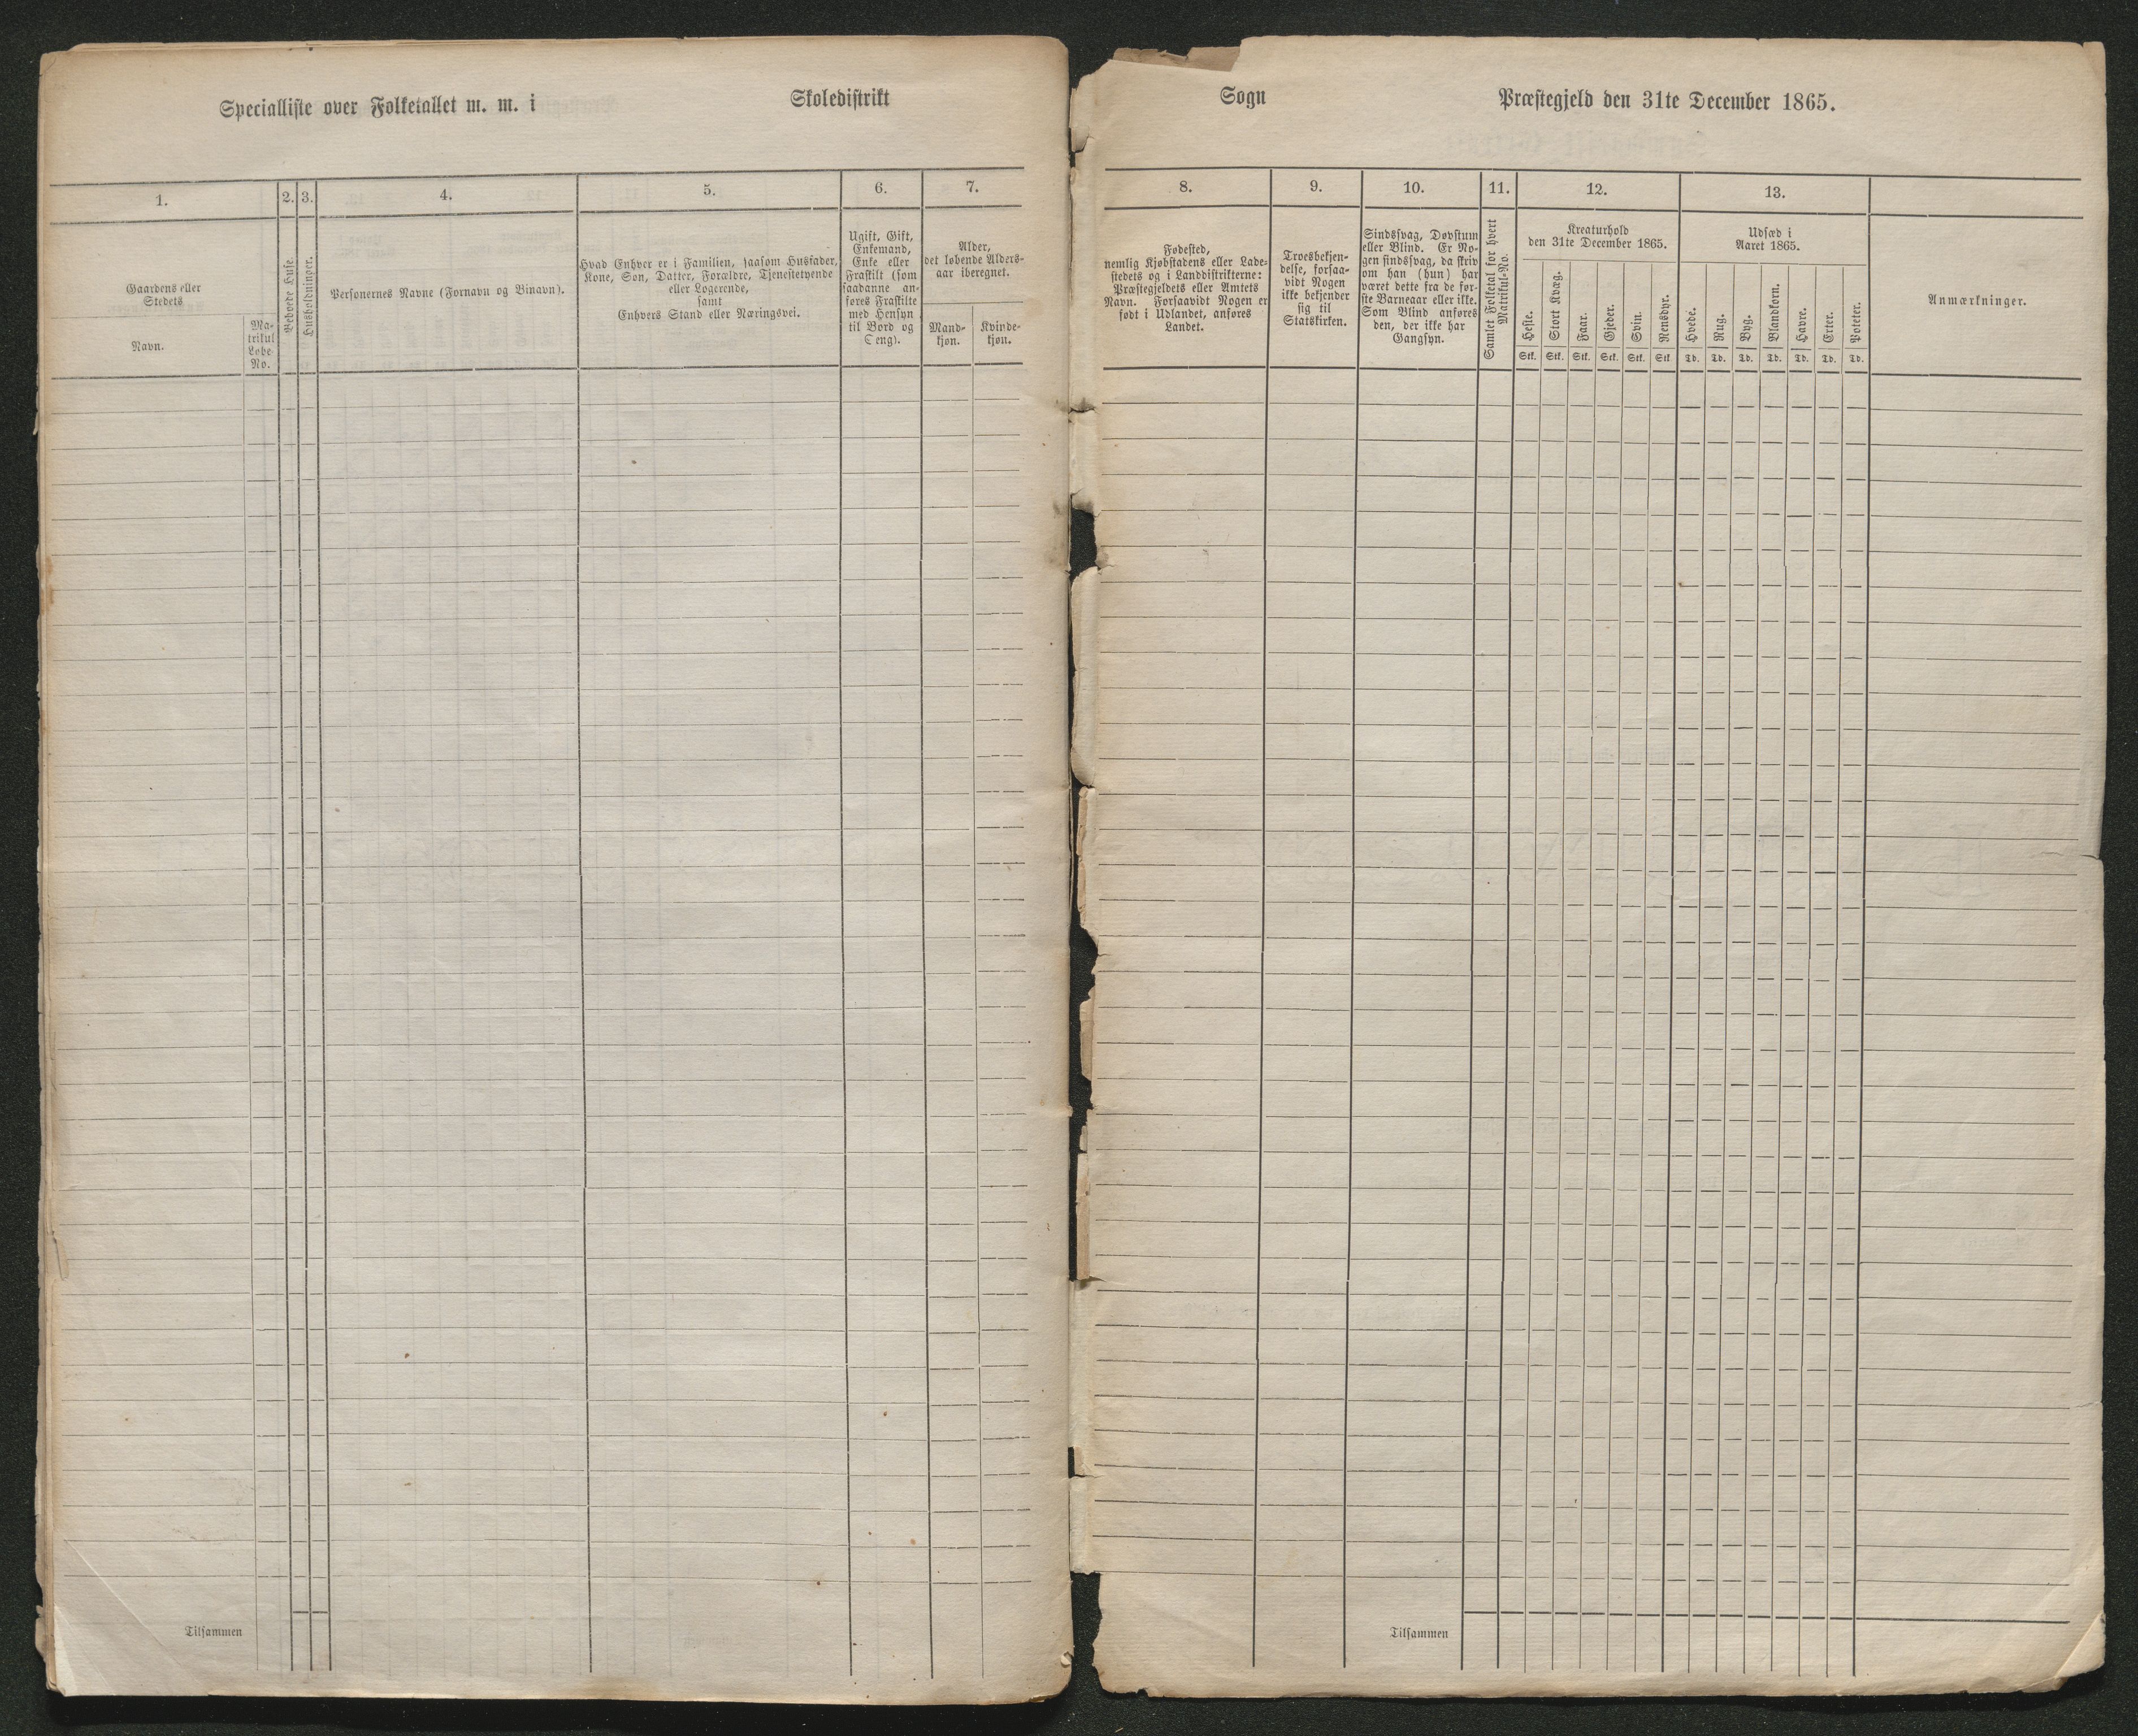 Specialliste over Folketallet m. m. i Skoledistrikt Sogn Præstegjeld den 31te December 1865.
1.
Gaardens eller
Stedets
Navn.
Ma-
trikul
Løbe-
No.
2.
Beboede Huse.
3.
Husholdninger.
4.
Personernes Navne (Fornavn og Binavn).
5.
Hvad Enhver er i Familien, saasom Husfader,
Kone, Søn, Datter, Forældre, Tjenestetyende
eller Logerende,
samt
Enhvers Stand eller Næringsvei.
6.
Ugift, Gift,
Enkemand,
Enke eller
Fraskilt (som
saadanne an-
føres Fraskilte
med Hensyn
til Bord og
Seng).
7.
Alder,
det løbende Alders-
aar iberegnet.
Mand-
kjøn.
Kvinde-
kjøn.
8.
Fødested,
nemlig Kjøbstadens eller Lade-
stedets og i Landdistrikterne:
Præstegjeldets eller Amtets
Navn. Forsaavidt Nogen er
født i Udlandet, anføres
Landet.
9.
Troesbekjen-
delse, forsaa-
vidt Nogen
ikke bekjender
sig til
Statskirken.
10.
Sindssvag, Døvstum
eller Blind. Er No-
gen sindssvag, da skriv
om han (hun) har
været dette fra de før-
ste Barneaar eller ikke.
Som Blind anføres
den, der ikke har
Gangsyn.
11.
Samlet Folketal for hvert
Matrikul-No.
12.
Kreaturhold
den 31te December 1865.
Heste.
Stort Kvæg.
Faar.
Gjeder.
Svin.
Rensdyr.
Stk. Stk. Stk. Stk. Stk. Stk.
13.
Udsæd i
Aaret 1865.
Hvede.
Rug.
Byg.
Blandkorn.
Havre.
Erter.
Poteter.
Td. Td. Td. Td. Td. Td. Td.
Anmærkninger.
Tilsammen
Tilsammen